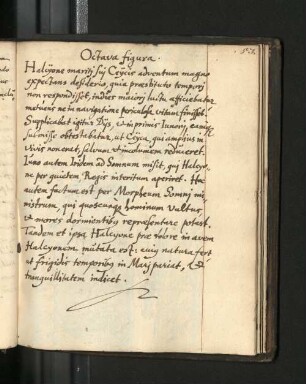 Octava figura.
Halcyone mariti sui Ceycis adventum magno
expectans desiderio, quia præstituto tempori
non respondisset, indies maiori luctu afficiebatur
metuens ne in navigatione periculosa vitam finisset.
Supplicabat igitur Dijs, et inprimis Iunoni,
obtestabatur, ut Ceyca, qui amplius in
vivis non erat, salvum et incolumem reduceret.
Iuno autem Iridem ad Somnum misit, qui Halcyo,,
ne per quietem Regis interitum aperiret. Hoc
autem factum est per Morpheum Somni mi,,
nistrum, qui quoscunq hominum vultus
et mores dormientibus repræsentare potest.
Tandem et ipsa Halcyone præ dolore in avem
Halcyonem mutata est: cuius natura fert
ut frigidis temporibus in Mari pariat, et
tranquillitatem indicet.